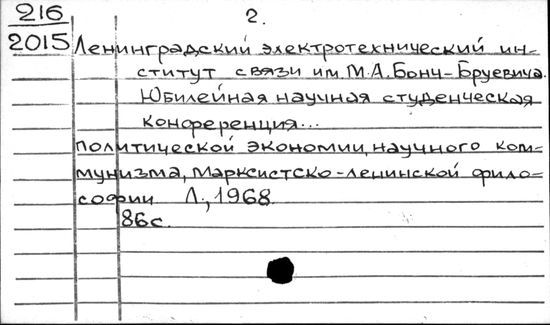 216
2015
2.
Ленинградский электротехнический ин=
ститут связи им. М.А. Бонч-Бруевича.
Юбилейная научная студенческая
конференция...
политической экономии, научного ком=
мунизма, марксистско-ленинской фило=
софии Л., 1968.
86с.